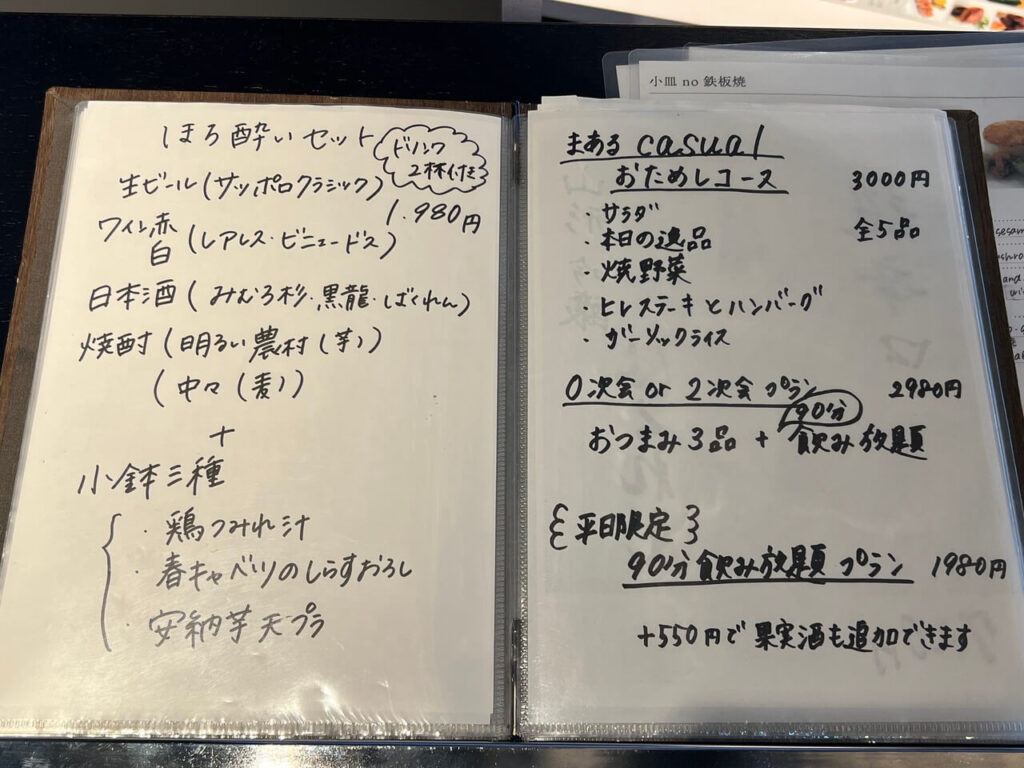 小皿 no 鉄板焼
ほろ酔いセット
ドリンク
2杯付き
生ビール(サッポロクラシック)
1.980円
ワイン赤
白 (レアレス・ビニュードス)
日本酒 (みむろ杉・黒龍・ばくれん)
焼酎 (明るい農村(芋))
(中々(麦))
+
小鉢三種
・鶏つみれ汁
・春キャベツのしらすおろし
・安納芋天プラ
まある casual
おためしコース 3000円
・サラダ 全5品
・本日の逸品
・焼野菜
・ヒレステーキとハンバーグ
・ガーリックライス
0次会 or 2次会 プラン 2980円
90分
おつまみ3品 + 飲み放題
{平日限定}
90分飲み放題プラン 1980円
+550円で果実酒も追加できます